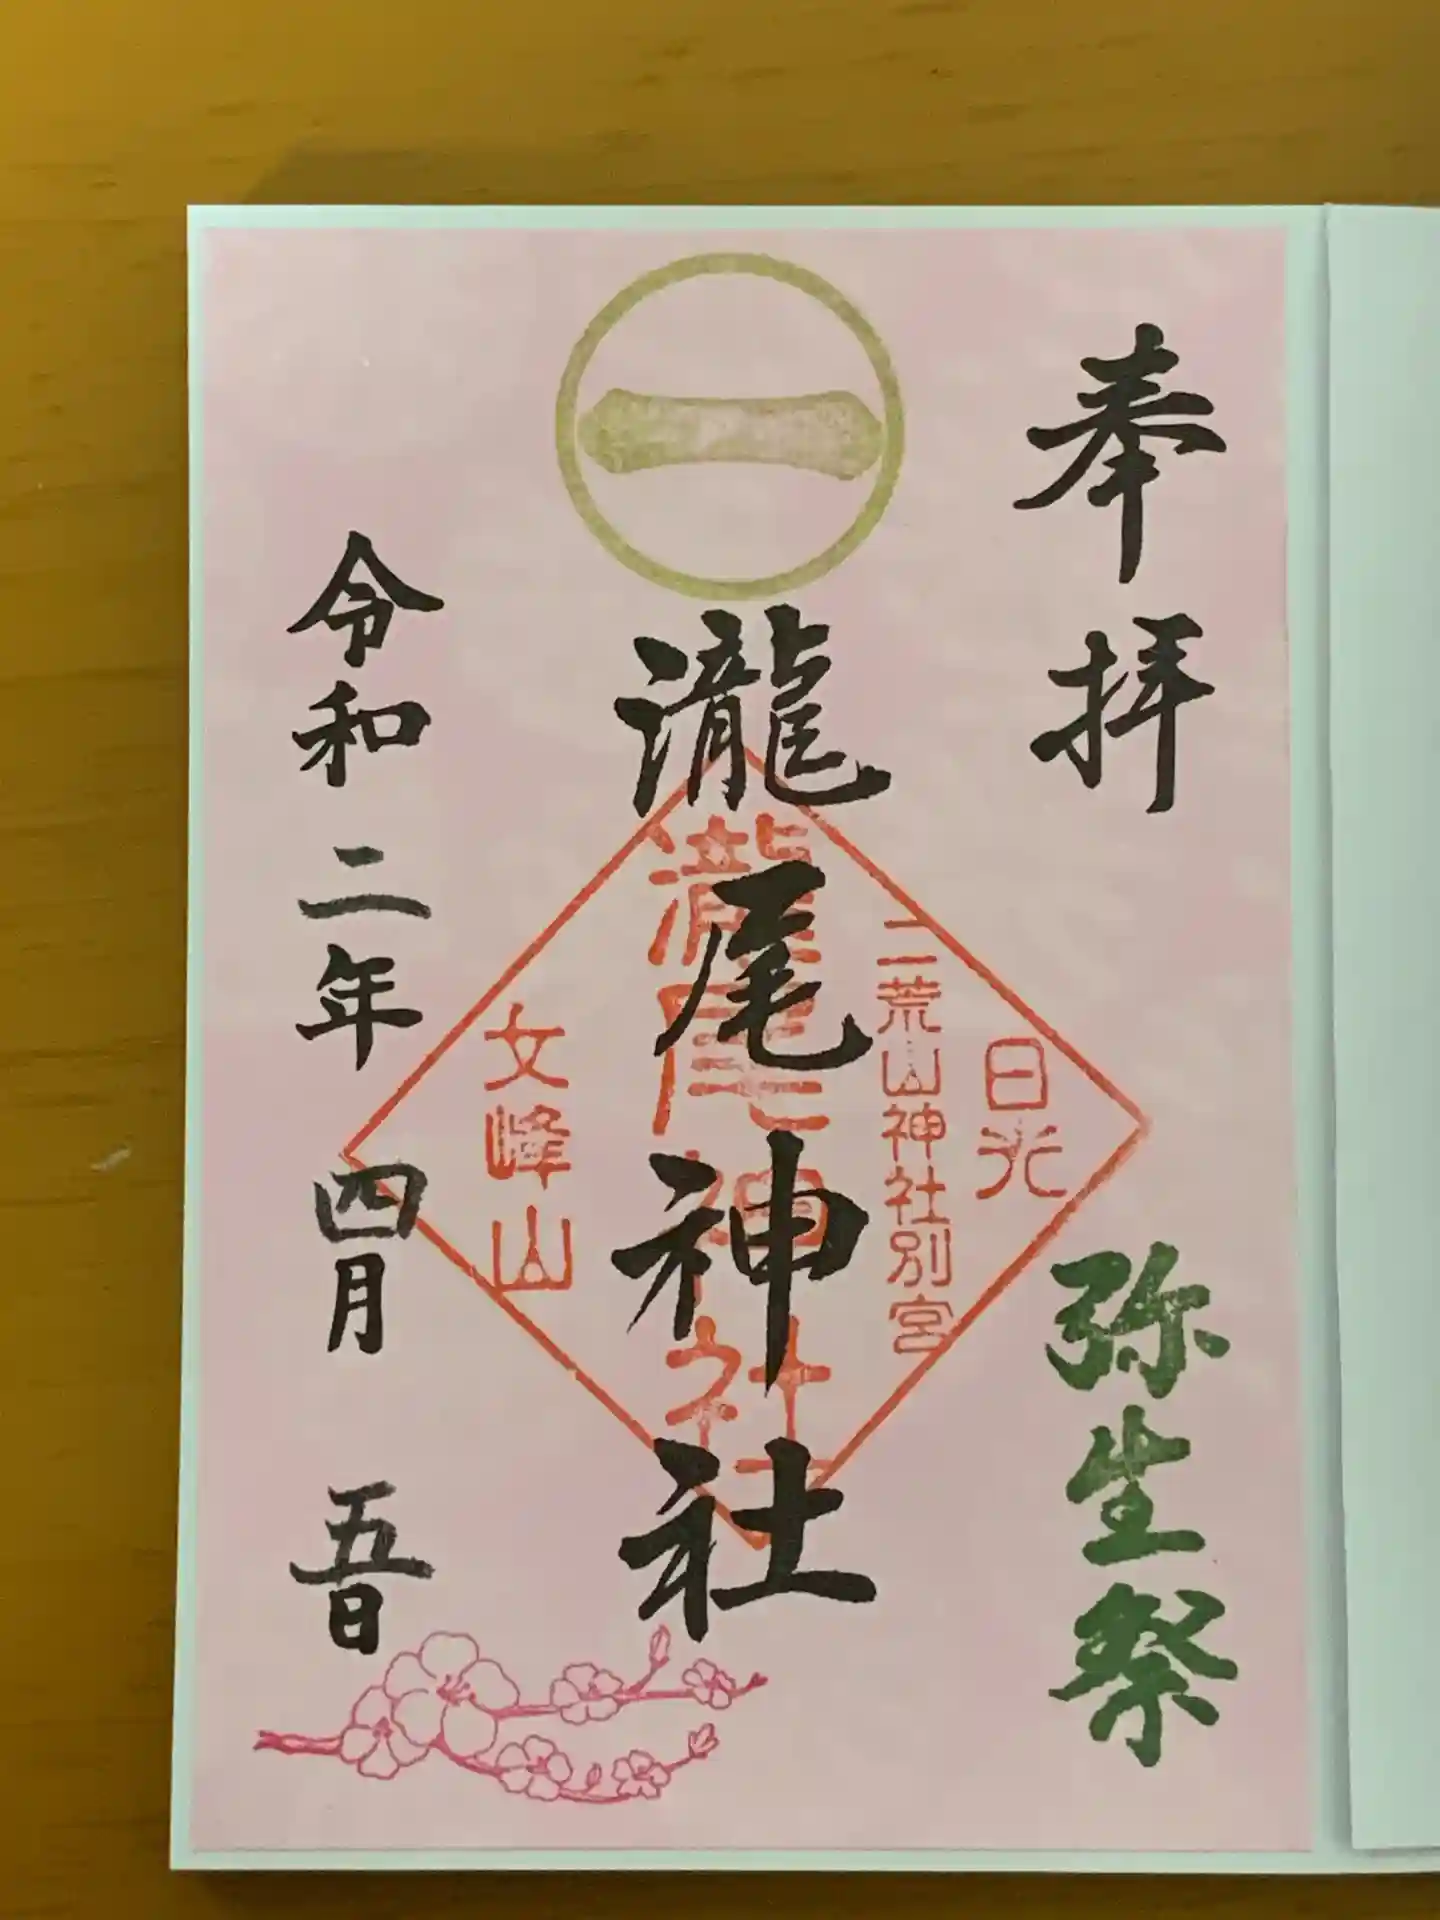 奉拝
弥生祭
一
瀧尾神社
日光
二荒山神社別宮
瀧尾神社
文峰山
令和二年四月五日